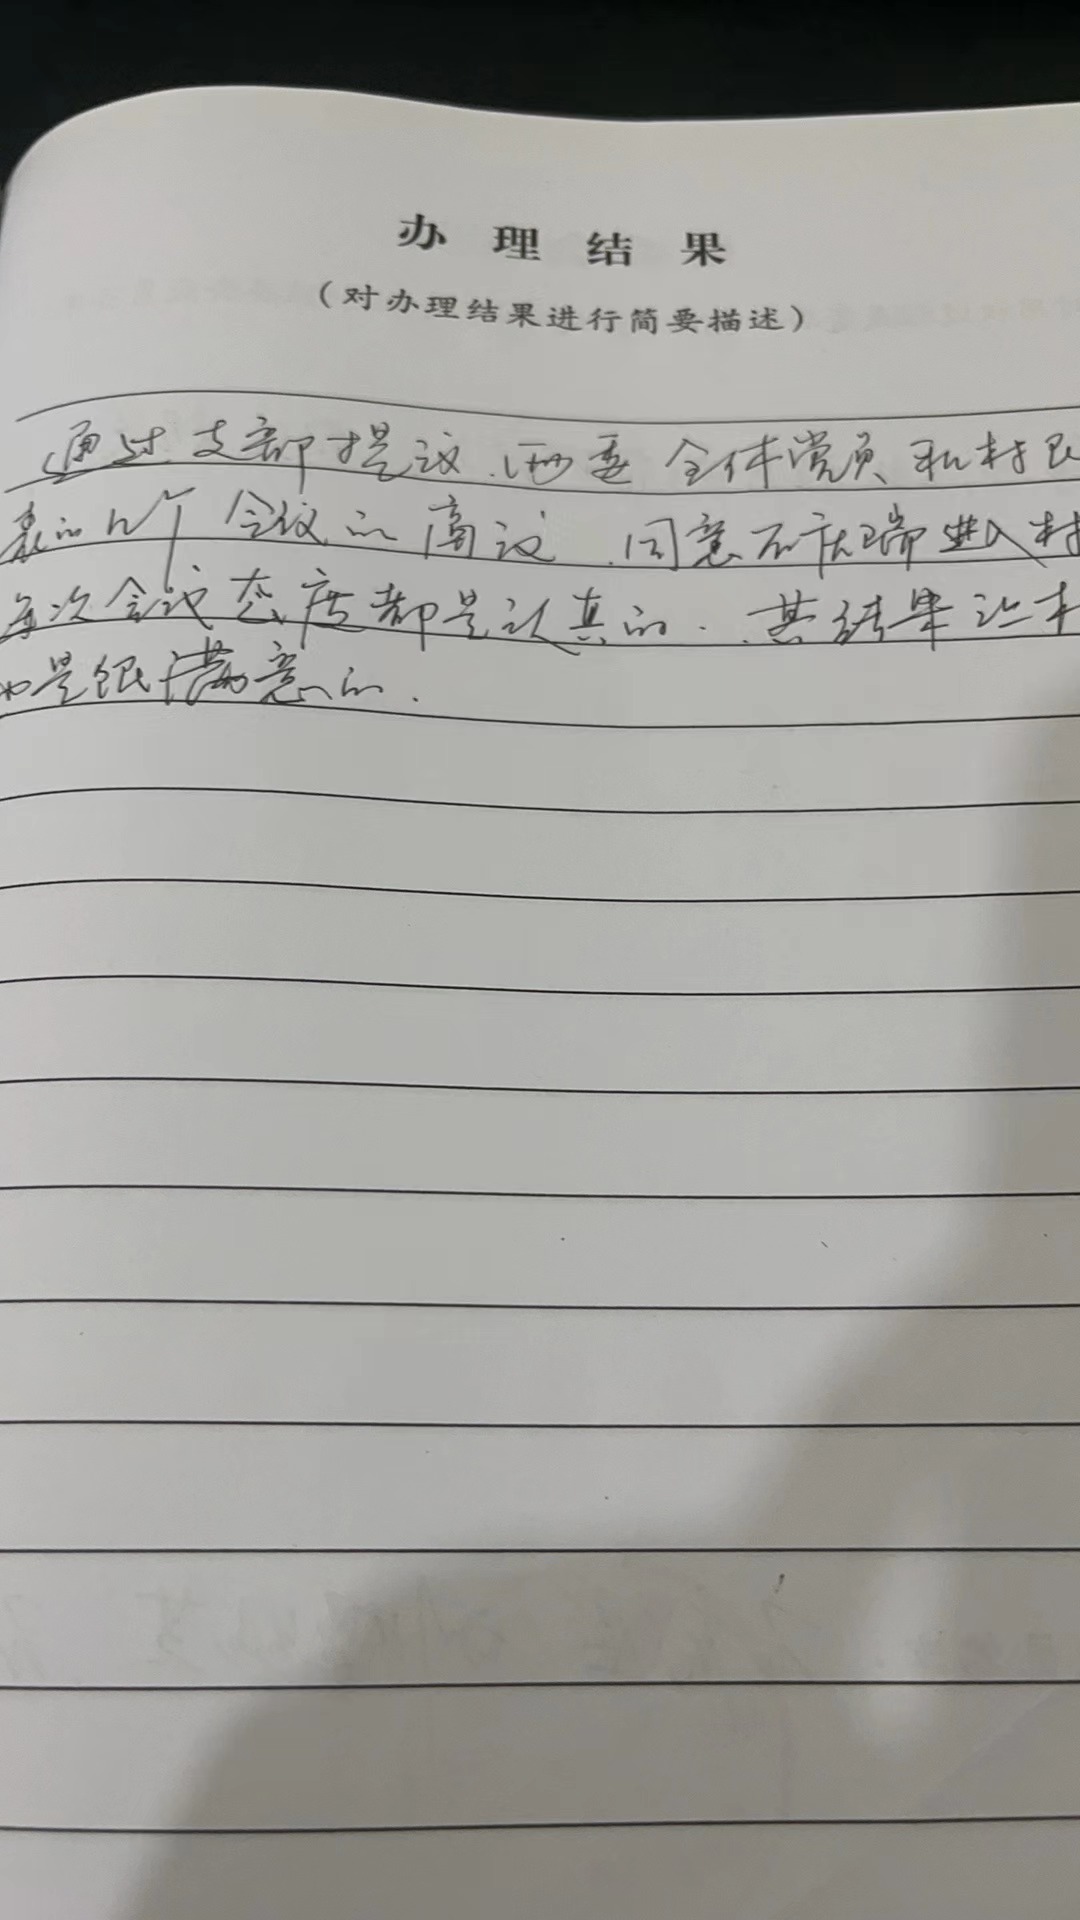 办理结果
(对办理结果进行简要描述)
通过支部提议.两委 全体党员和村民
表的几个会议的商议.同意石庆瑞进入村
每次会议态度都是认真的..其结果让村
也是很满意的.